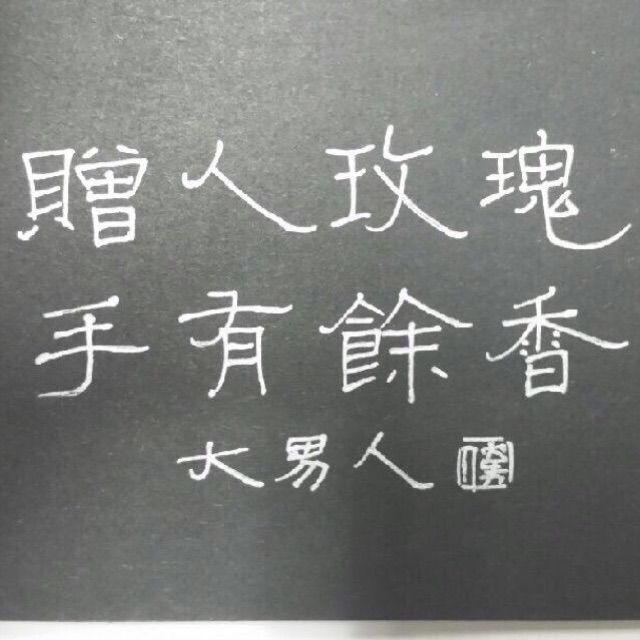 贈人玫瑰
手有餘香
大男人